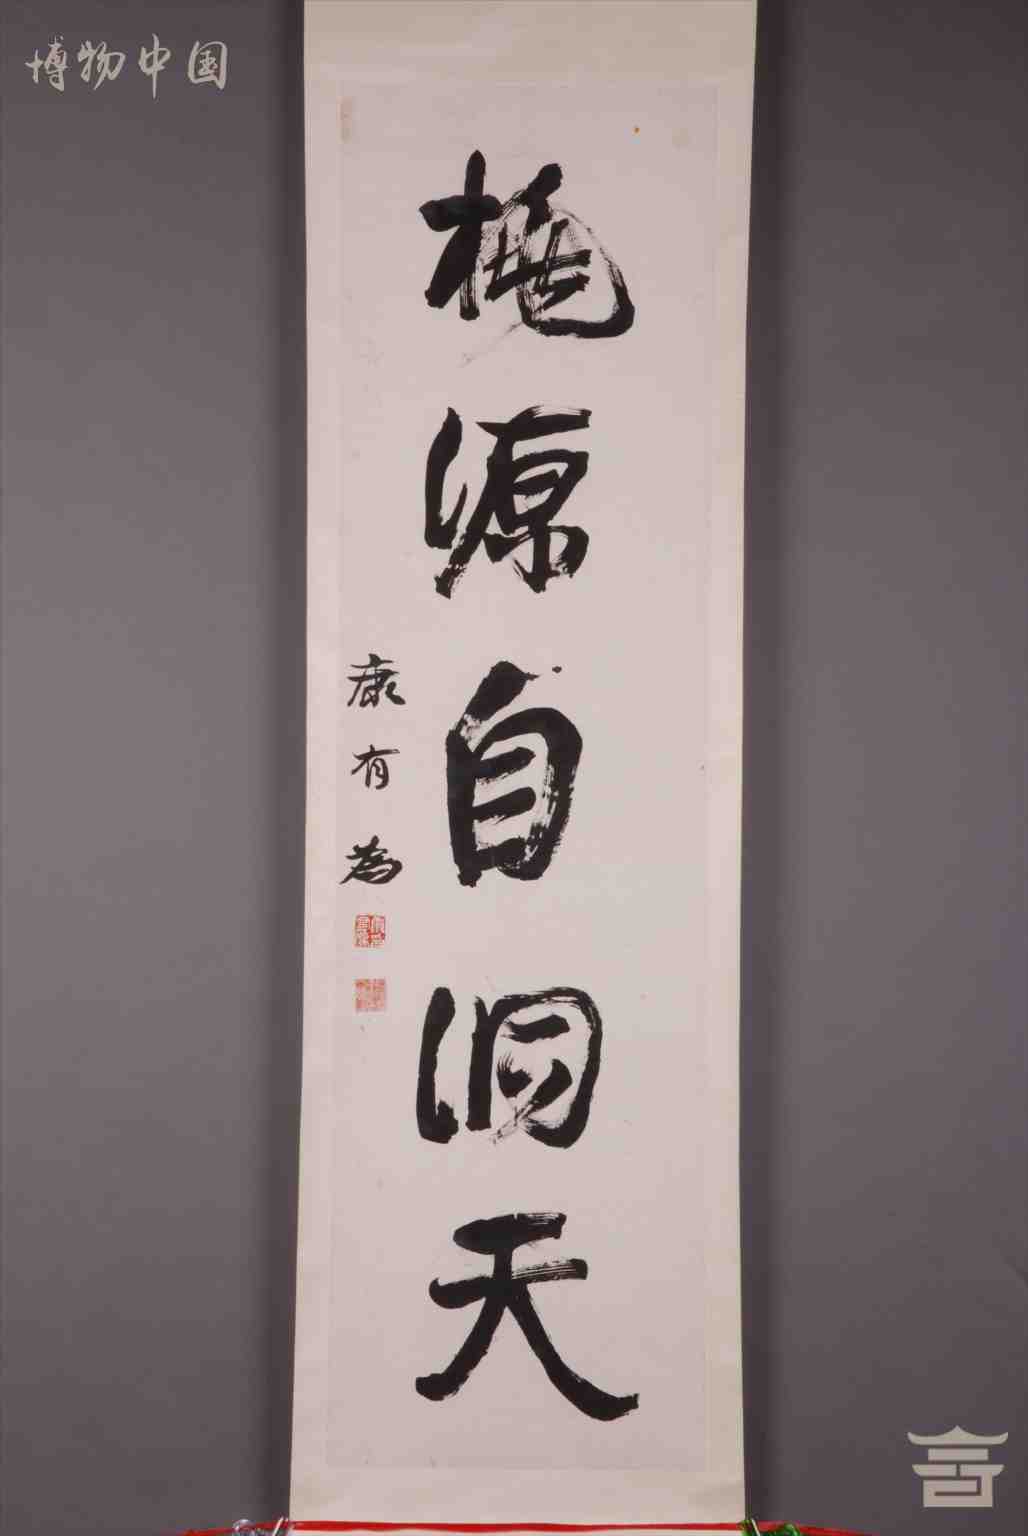 博物中国
桃源自洞天
康有為